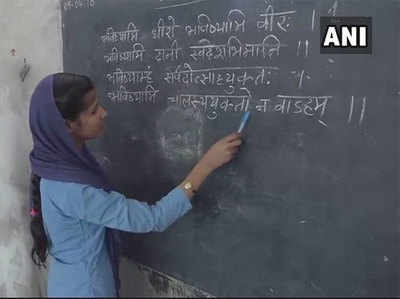 भविष्यामि धीरो भविष्यामि वीरः ।
ANI
भविष्यामि दानी स्वदेशभिमानि ॥
भविष्याम्यहं सर्वदोत्साहयुक्तः
भविष्यामि चालस्ययुक्तो न वाऽहम् ॥